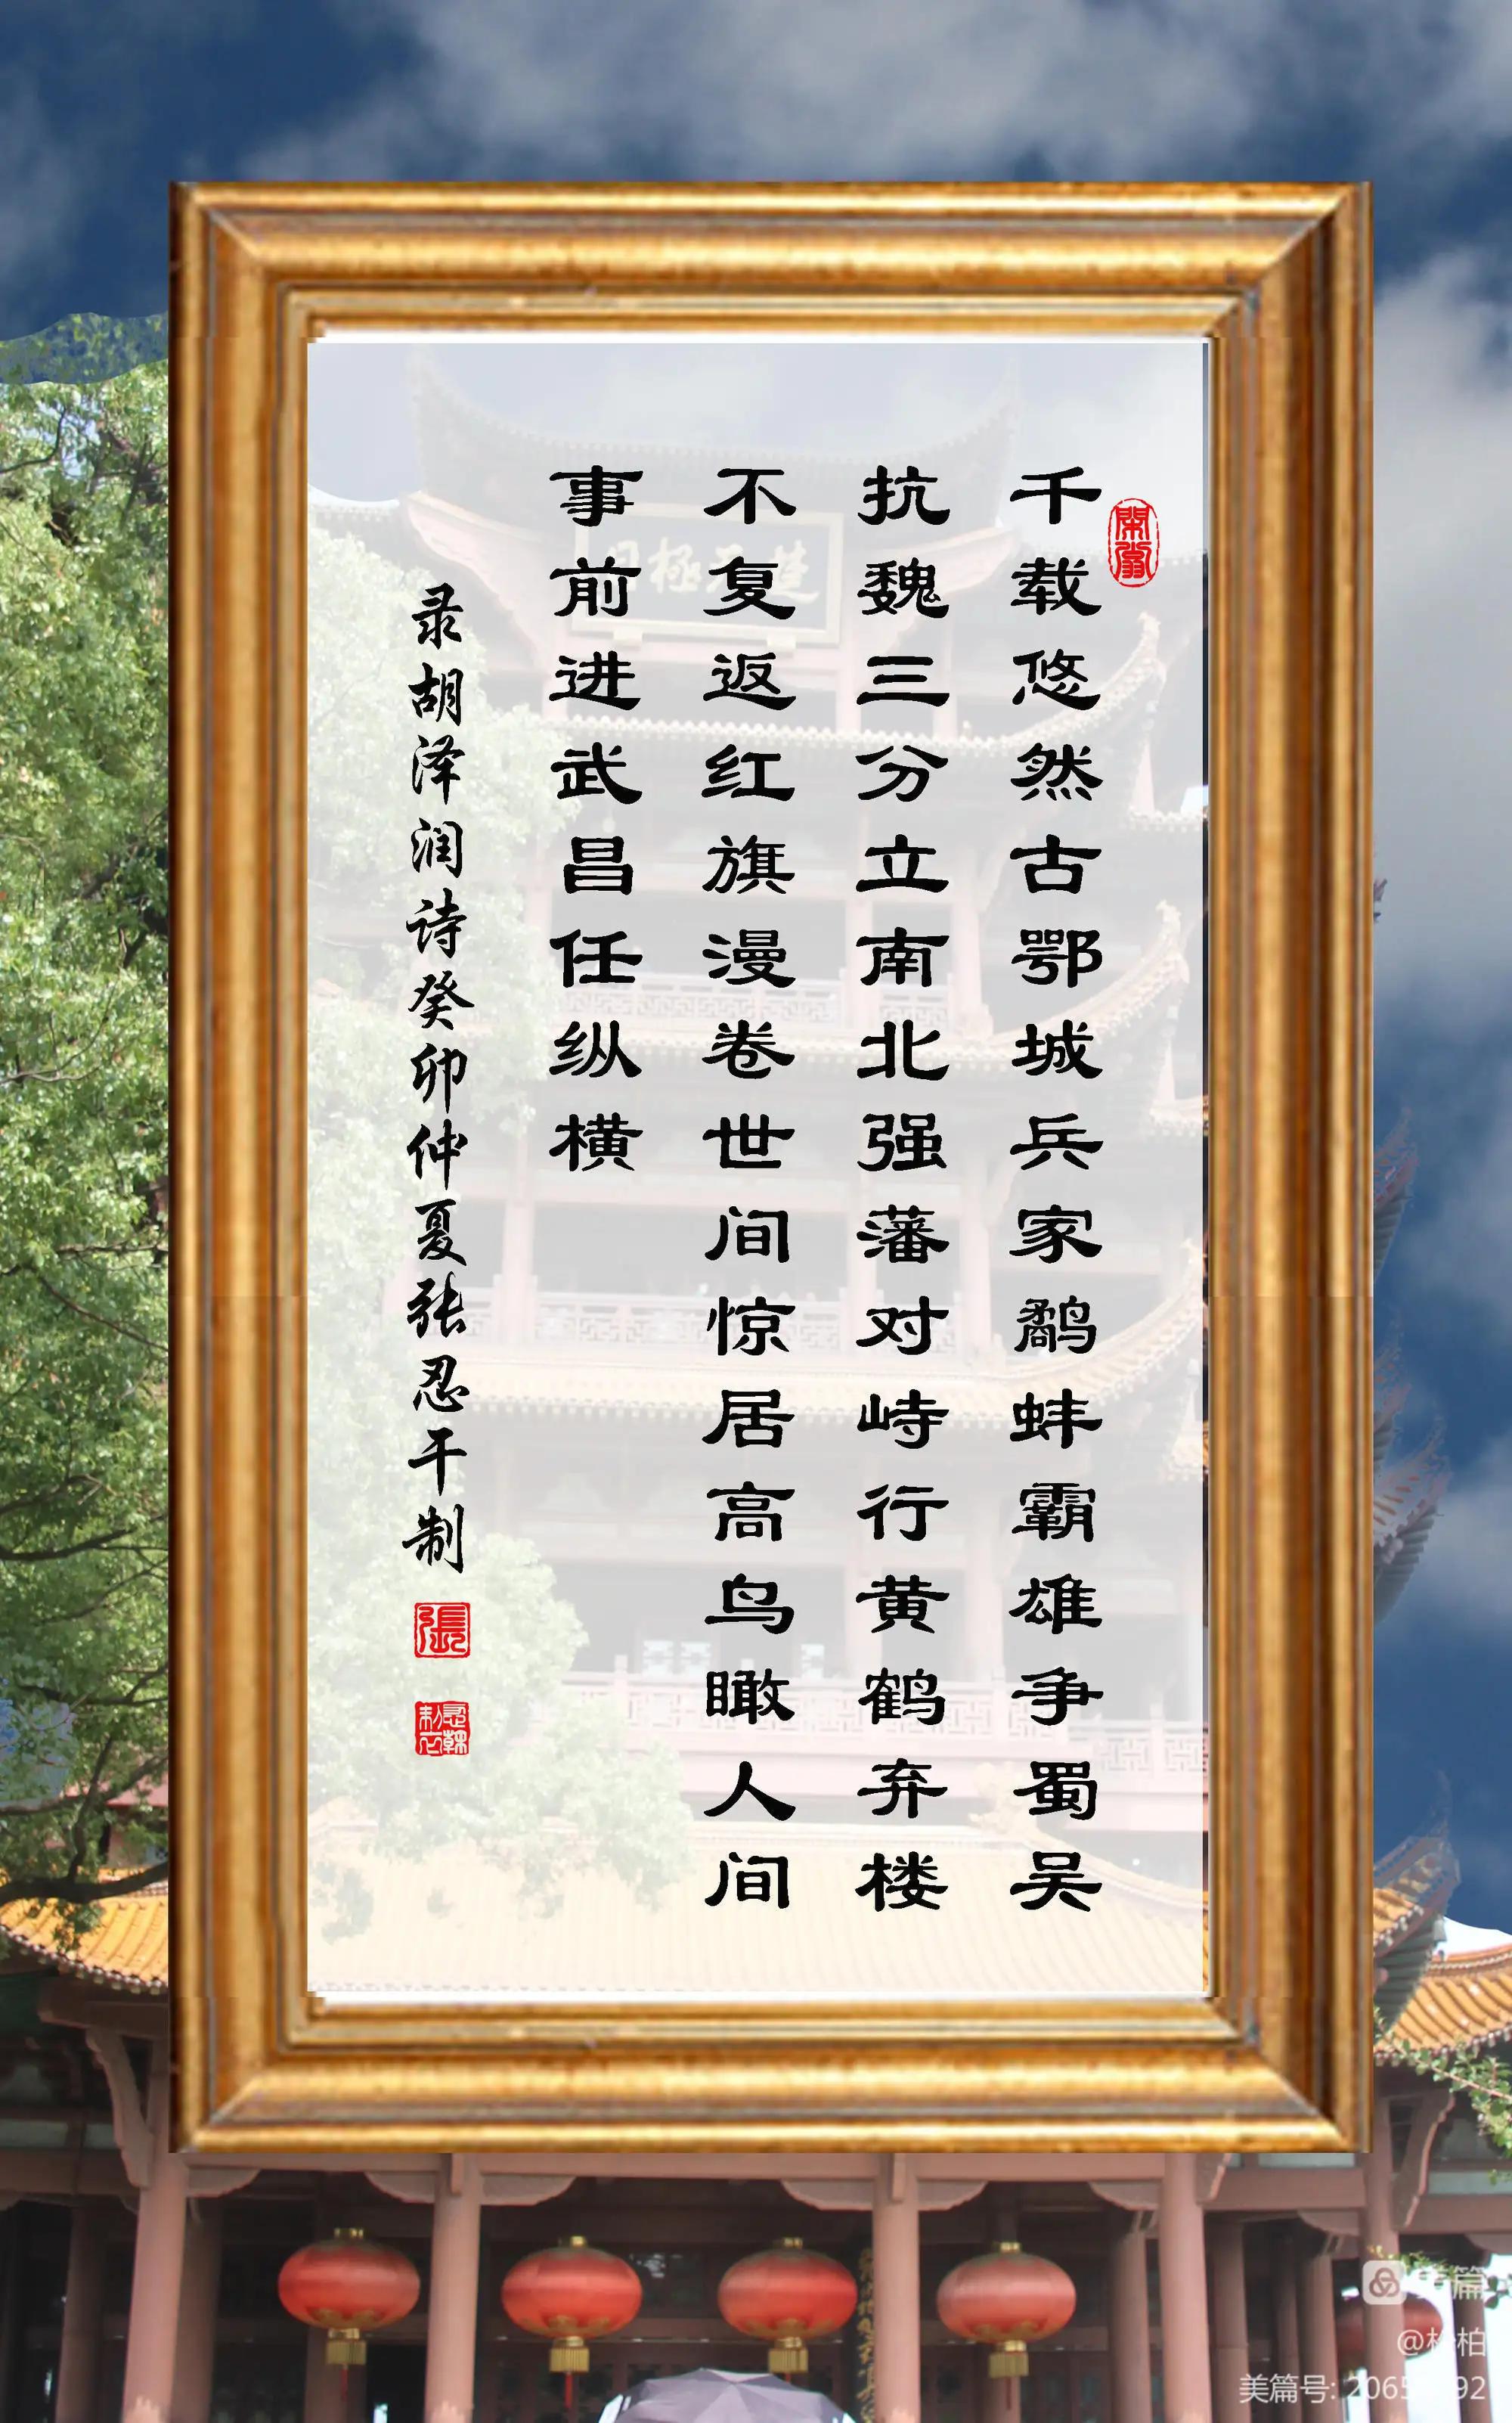 千载悠然古鄂城兵家鹬蚌霸雄争蜀吴
抗魏三分立南北强藩对峙行黄鹤弃楼
不复返红旗漫卷世间惊居高鸟瞰人间
事前进武昌任纵横
录胡泽润诗癸卯仲夏张忍干制
張
楚天極目
美篇
美篇号: